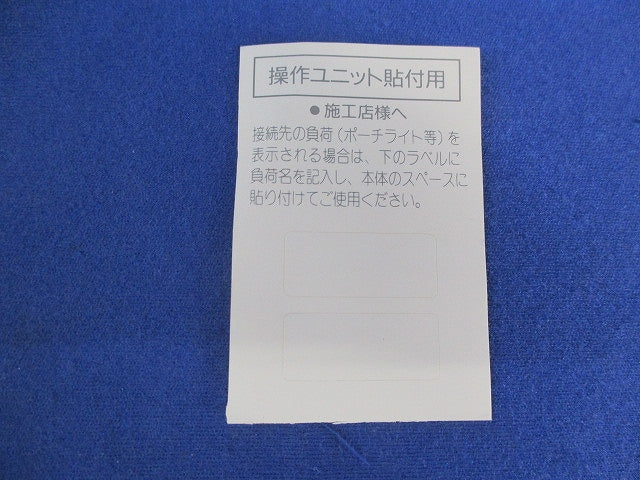 操作ユニット貼付用
●施工店様へ
接続先の負荷(ポーチライト等)を
表示される場合は、下のラベルに
負荷名を記入し、本体のスペースに
貼り付けてご使用ください。